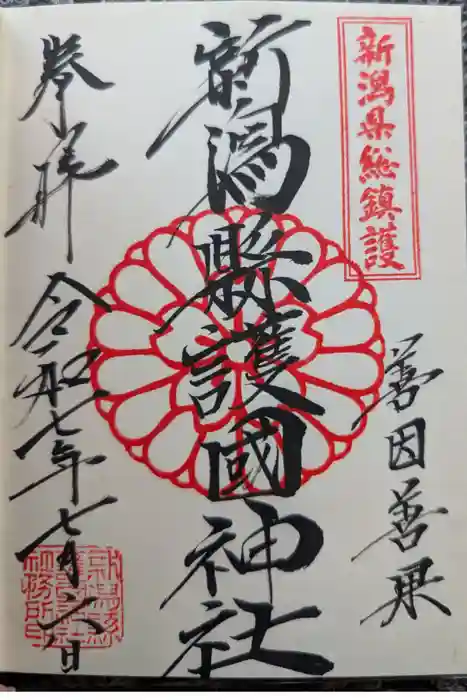 新潟県総鎮護
善因善果
新潟縣護國神社
奉拝
令和七年七月六日